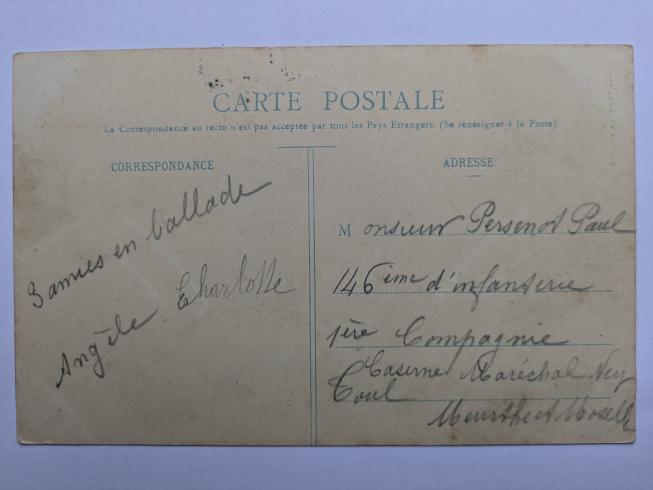 CARTE POSTALE
La Correspondance au recto n'est pas acceptée par tous les Pays Étrangers. (Se renseigner à la Poste).
CORRESPONDANCE
3 amies en ballade
Angèle Charlotte
ADRESSE
Monsieur Persenot Paul
146ème d'infanterie
1ère Compagnie
Caserne Maréchal Ney
Toul
Meurthe et Moselle